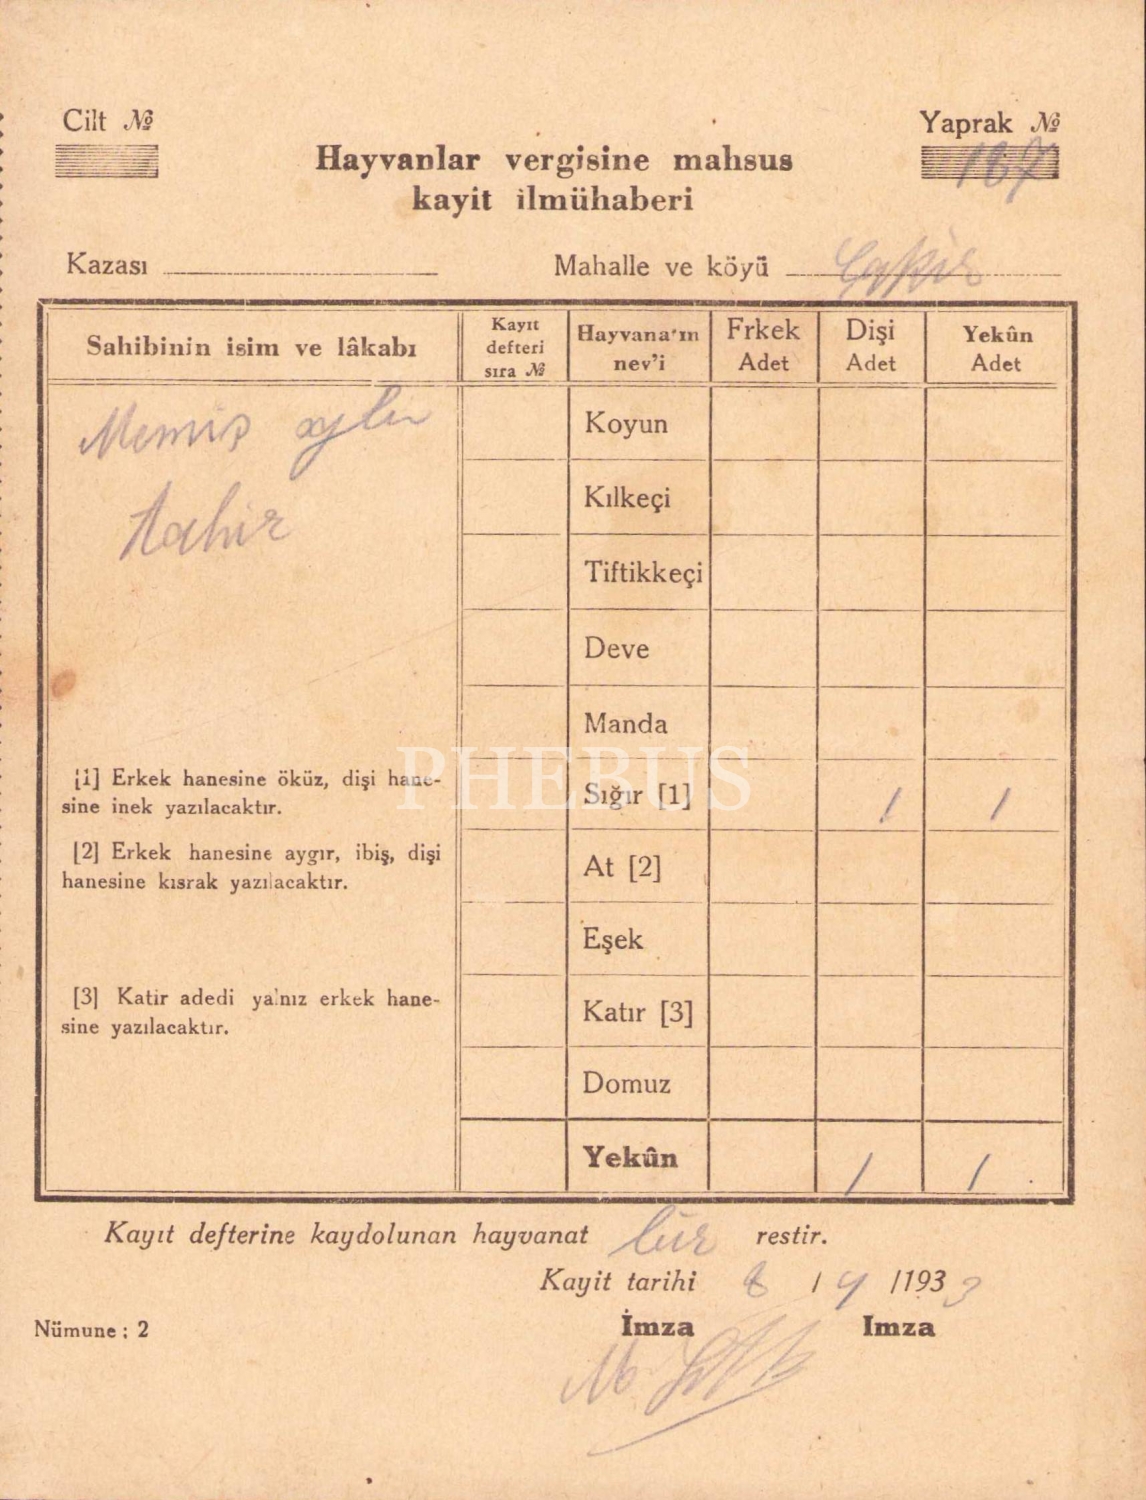 Cilt №
Yaprak №
167
Hayvanlar vergisine mahsus
kayit ilmühaberi
Kazası
Mahalle ve köyü
Sahibinin isim ve lâkabı
Kayıt defteri sıra №
Hayvana'ın nev'i
Frkek Adet
Dişi Adet
Yekûn Adet
Memiş oğlu
Tahir
Koyun
Kılkeçi
Tiftikkeçi
Deve
Manda
[1] Erkek hanesine öküz, dişi hane-
sine inek yazılacaktır.
Sığır [1] 1 1
[2] Erkek hanesine aygır, ibiş, dişi
hanesine kısrak yazılacaktır.
At [2]
Eşek
[3] Katir adedi yalnız erkek hane-
sine yazılacaktır.
Katır [3]
Domuz
Yekûn 1 1
Kayıt defterine kaydolunan hayvanat bir restir.
Kayit tarihi 8 / 4 /1933
İmza Imza
Nümune : 2
PHEBUS